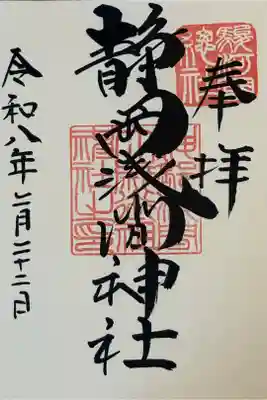 奉拝
静岡浅間神社
令和八年二月二十二日